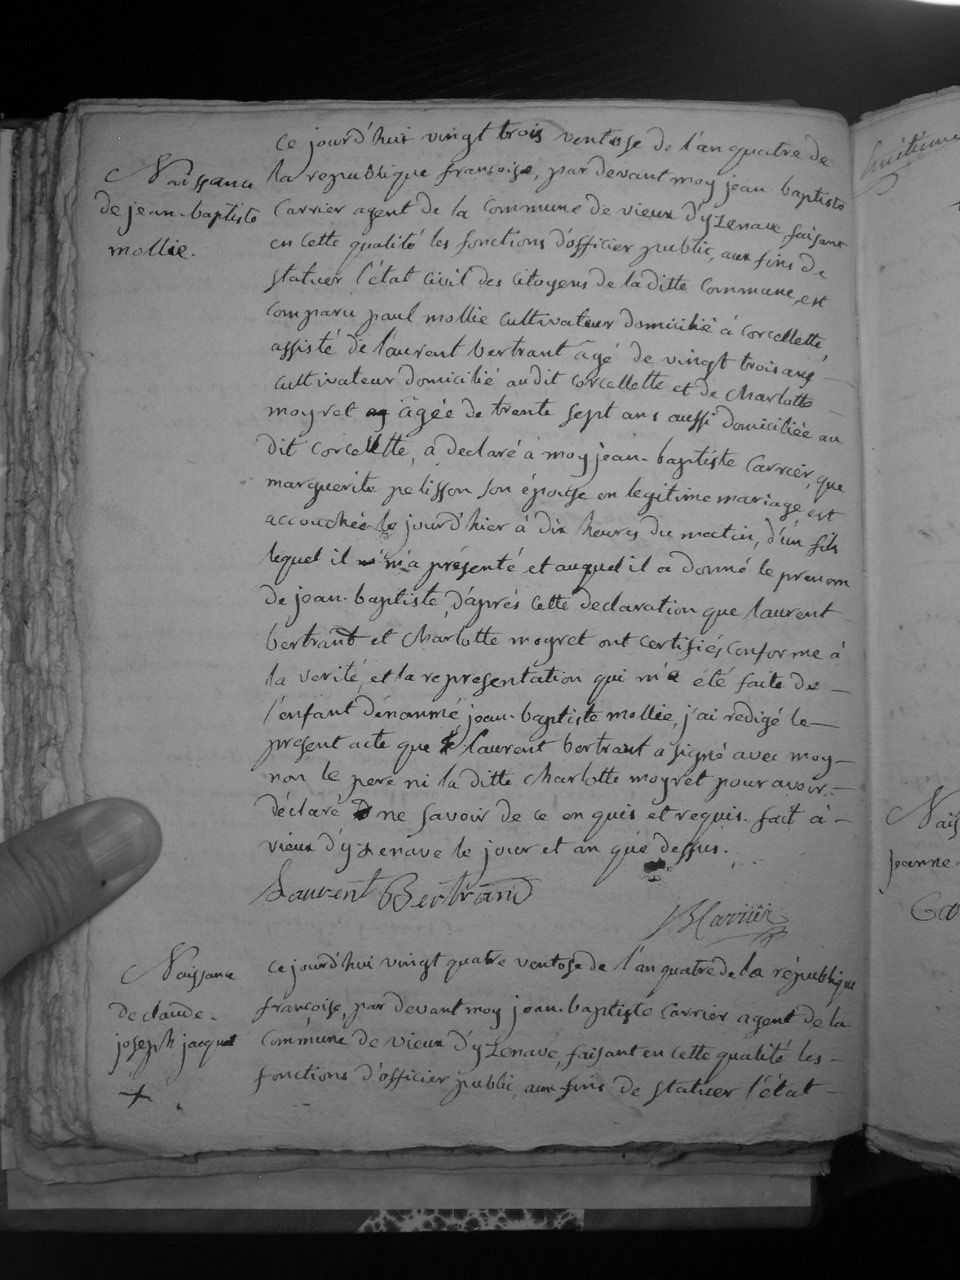 Naissance
de jean-baptiste
mollie.
ce jourd'hui vingt trois ventose de l'an quatre de
la republique françoise, par devant moy jean-baptiste
Carrier agent de la Commune de vieux d'yzenave faisant
en cette qualité les fonctions d'officier public, aux fins de
statuer l'état civil des citoyens de la ditte Commune, est
comparu paul mollie cultivateur domicilié à corcellette,
assisté de laurent bertrant âgé de vingt trois ans
cultivateur domicilié audit corcellette et de charlotte
moyret âgée de trente sept ans aussi domiciliée au
dit corcellette, a declaré à moy jean-baptiste Carrier, que
marguerite pelisson son épouse en legitime mariage est
accouchée le jourd'hier à dix heures du matin, d'un fils
lequel il m'a présenté et auquel il a donné le prenom
de jean-baptiste, d'après cette declaration que laurent
bertrant et charlotte moyret ont certifiés conforme à
la verité, et la representation qui m'a été faite de
l'enfant dénommé, jean-baptiste mollie, j'ai redigé le
present acte que laurent bertrant a signé avec moy
non le pere ni la ditte charlotte moyret pour avoir
déclaré ne savoir de ce enquis et requis. fait à
vieux d'yzenave le jour et an que dessus.
Laurent Bertrand
JB Carrier
Naissance
de claude-
joseph jacquet
ce jourd'hui vingt quatre ventose de l'an quatre de la république
françoise, par devant moy jean-baptiste Carrier agent de la
Commune de vieux d'yzenave, faisant en cette qualité les
fonctions d'officier public, aux fins de statuer l'état
jeanne